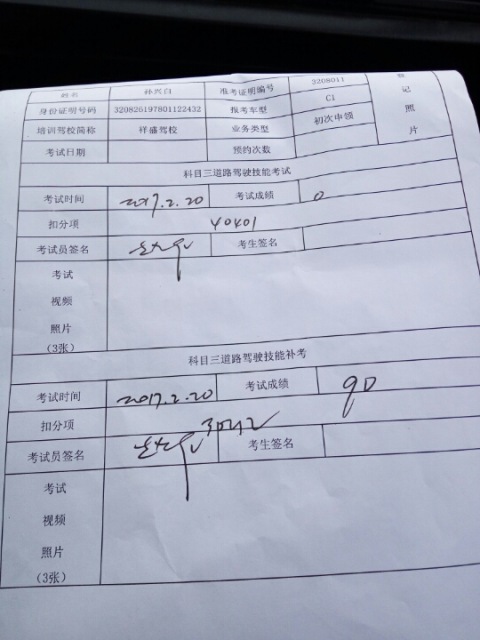 姓名 孙兴白 准考证明编号 3208011 登记照片
身份证明号码 320826197801122432 报考车型 C1
培训驾校简称 祥盛驾校 业务类型 初次申领
考试日期 预约次数
科目三道路驾驶技能考试
考试时间 2017.2.20 考试成绩 0
扣分项 40401
考试员签名 考生签名
考试
视频
照片
(3张)
科目三道路驾驶技能补考
考试时间 2017.2.20 考试成绩 90
扣分项 30212
考试员签名 考生签名
考试
视频
照片
(3张)